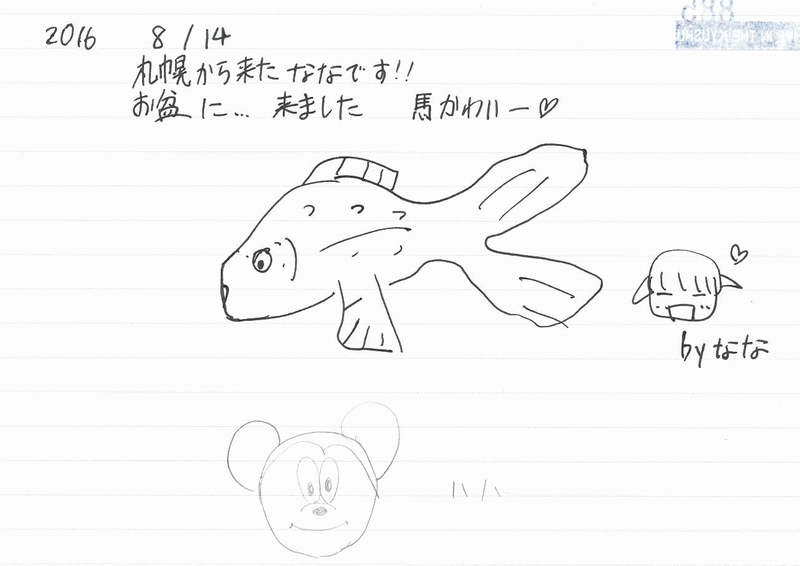 2016 8/14
札幌から来た ななです!!
お盆に… 来ました 馬かわいー♡
by なな
ハハ